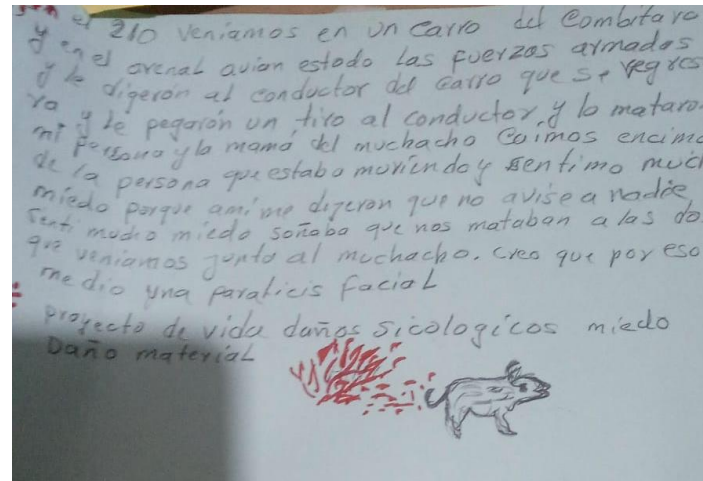 en el 210 veniamos en un carro del Combitaro
y en el arenal avian estado Las fuerzas armadas
y le digeron al conductor del carro que se regres
ra y le pegaron un tiro al conductor, y lo mataro
mi Persona y la mamá del muchacho Caimos encima
de la persona que estaba muriendo y sentimo much
miedo porque ami me digeron que no avise a nadie
senti mucho miedo soñaba que nos mataban a las do
que veniamos junto al muchacho. Creo que por eso
me dio una paralicis facial
proyecto de vida daños sicologicos miedo
Daño material